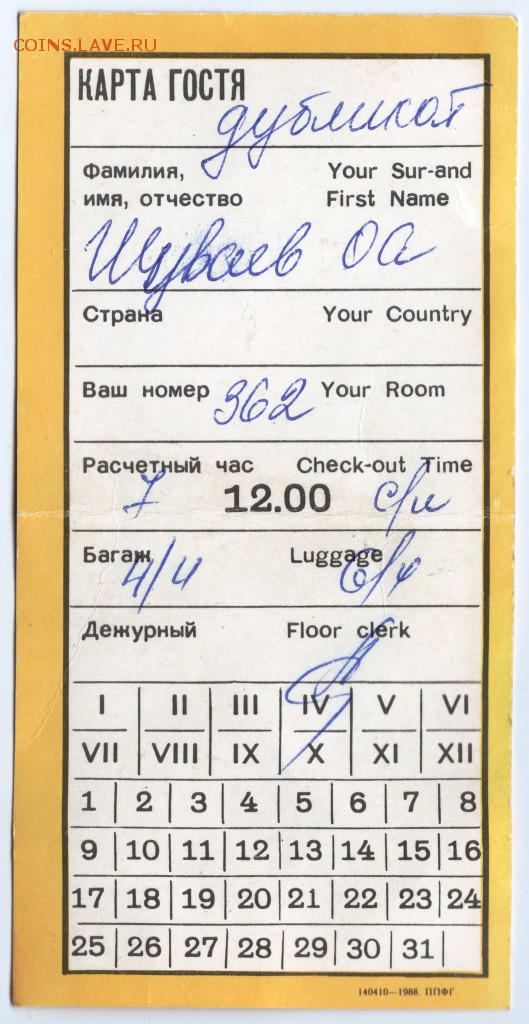 COINS.LAVE.РУ
КАРТА ГОСТЯ
дубликат
Фамилия, Your Sur-and
имя, отчество First Name
Шуваев ОА
Страна Your Country
Ваш номер 362 Your Room
Расчетный час Check-out Time
7 12.00
Багаж Luggage
Дежурный Floor clerk
I II III IV V VI
VII VIII IX X XI XII
1 2 3 4 5 6 7 8
9 10 11 12 13 14 15 16
17 18 19 20 21 22 23 24
25 26 27 28 29 30 31
140410—1988. ППФГ.